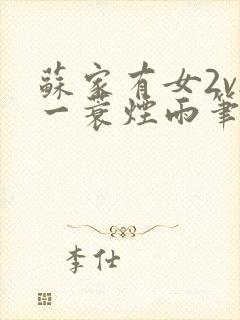 蘇家有女2v
一蓑煙雨筆
李仕